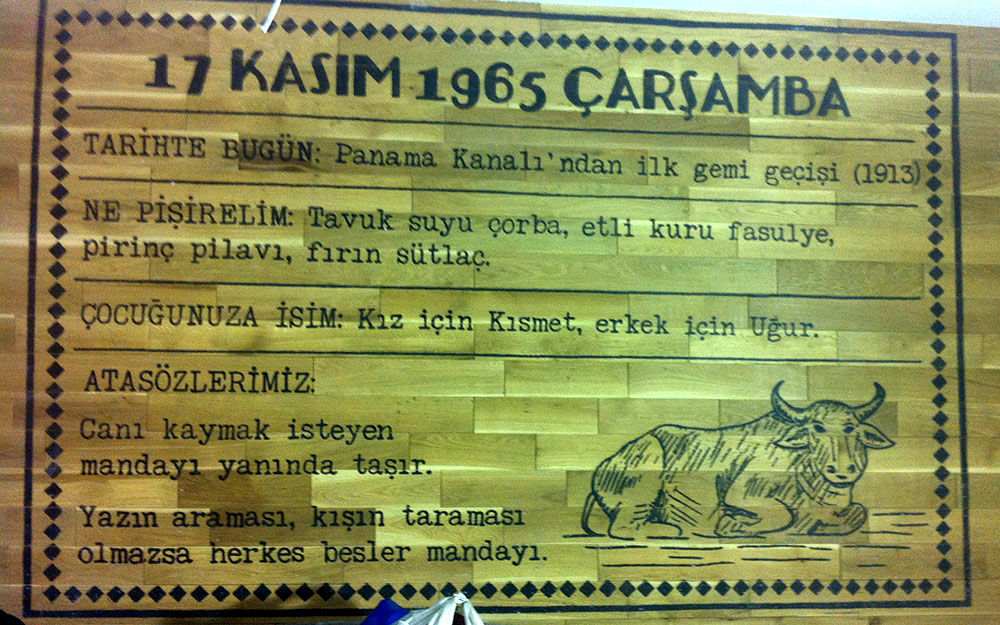 17 KASIM 1965 ÇARŞAMBA
TARİHTE BUGÜN: Panama Kanalı'ndan ilk gemi geçişi (1913)
NE PİŞİRELİM: Tavuk suyu çorba, etli kuru fasulye,
pirinç pilavı, fırın sütlaç.
ÇOCUĞUNUZA İSİM: Kız için Kısmet, erkek için Uğur.
ATASÖZLERİMİZ:
Canı kaymak isteyen
mandayı yanında taşır.
Yazın araması, kışın taraması
olmazsa herkes besler mandayı.